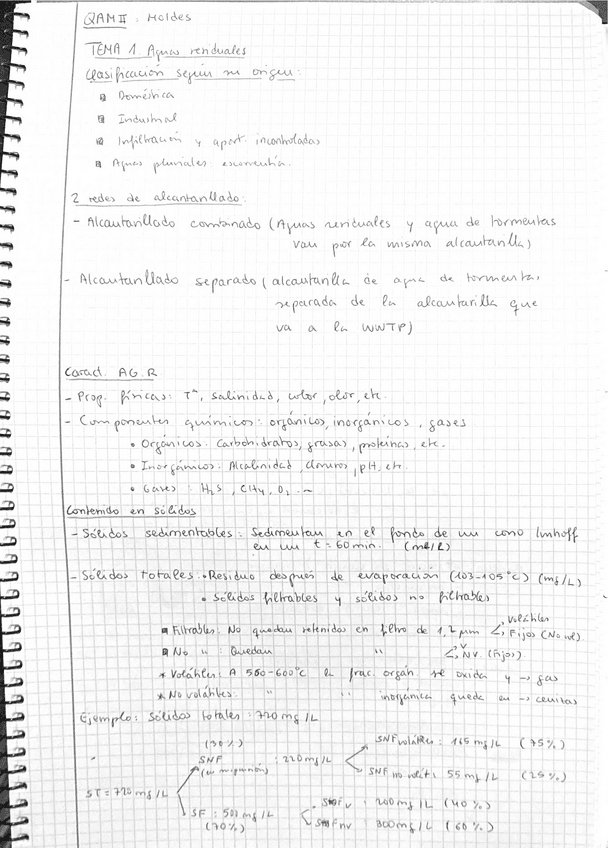 QAM II : Moldes
TEMA 1. Aguas residuales
Clasificación según su origen:
Doméstica
Industrial
Infiltración y aport. incontroladas
Aguas pluviales: escorrentía.
2 redes de alcantarillado:
- Alcantarillado combinado (Aguas residuales y agua de tormentas
van por la misma alcantarilla)
- Alcantarillado separado (alcantarilla de agua de tormentas
separada de la alcantarilla que
va a la WWTP)
Caract. AG. R
- Prop. físicas: Tª, salinidad, color, olor, etc.
- Componentes químicos: orgánicos, inorgánicos, gases
• Orgánicos: Carbohidratos, grasas, proteínas, etc.
• Inorgánicos: Alcalinidad, cloruros, pH, etc.
• Gases: H2S, CH4, O2 ...
Contenido en sólidos
- Sólidos sedimentables: Sedimentan en el fondo de un cono Imhoff
en un t = 60 min. (mL/L)
- Sólidos totales: • Residuo después de evaporación (103-105ºC) (mg/L)
• Sólidos filtrables y sólidos no filtrables
Filtrables: No quedan retenidos en filtro de 1,2 µm < Volátiles
Fijos (No vol)
No " : Quedan " < V
NV. (Fijos)
* Volátiles: A 550-600ºC la frac. orgán. se oxida y → gas
* No volátiles: " " inorgánica queda en → cenizas
Ejemplo: Sólidos totales: 720 mg/L
(30%)
SNF : 220 mg/L
SNF volátiles : 165 mg/L (75%)
SNF no volát: 55 mg/L (25%)
ST = 720 mg/L
SF : 500 mg/L
(70%)
SF v : 200 mg/L (40%)
SF nv : 300 mg/L (60%)